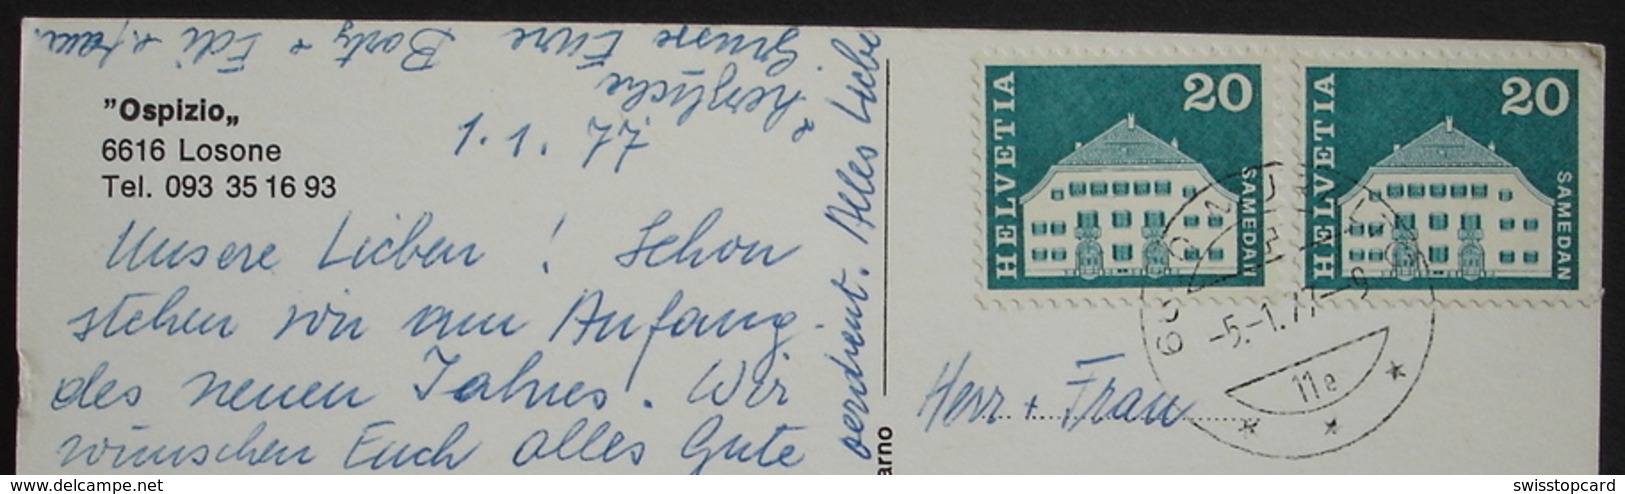 "Ospizio„
6616 Losone
Tel. 093 35 16 93
1. 1. 77
Unsere Lieben! Schon
stehen wir am Anfang
des neuen Jahres. Wir
wünschen Euch alles Gute
verdient. Alles Liebe
& herzliche
Grüsse Eure Borty + Edi
arno
HELVETIA 20 SAMEDAN
HELVETIA 20 SAMEDAN
-5.-1.77-9
11e
Herr + Frau
www.delcampe.net
swisstopcard